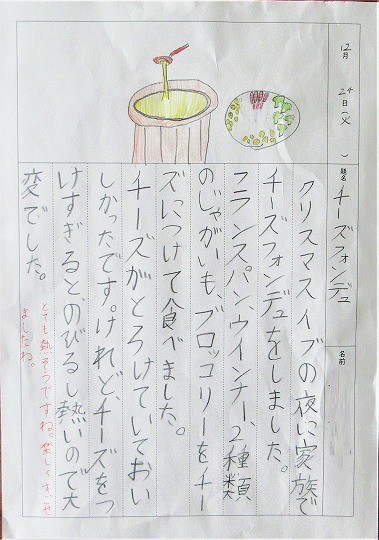 12月24日(火)
題名 チーズフォンデュ
名前
クリスマスイブの夜に家族で
チーズフォンデュをしました。
フランスパン、ウインナー、2種類
のじゃがいも、ブロッコリーをチー
ズにつけて食べました。
チーズがとろけていておい
しかったです。けれど、チーズをつ
けすぎると、のびるし熱いので大
変でした。
とても熱そうですね。楽しくすごせ
ましたね。